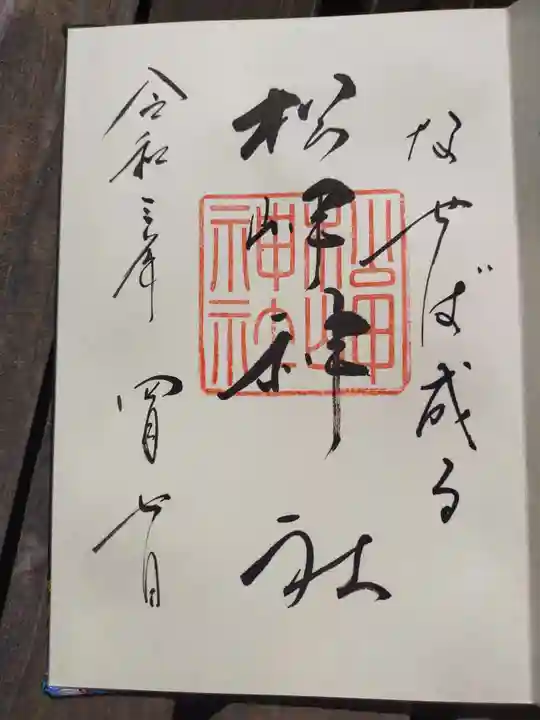 なせば成る
松岬神社
松岬神社
令和三年 四月 七日